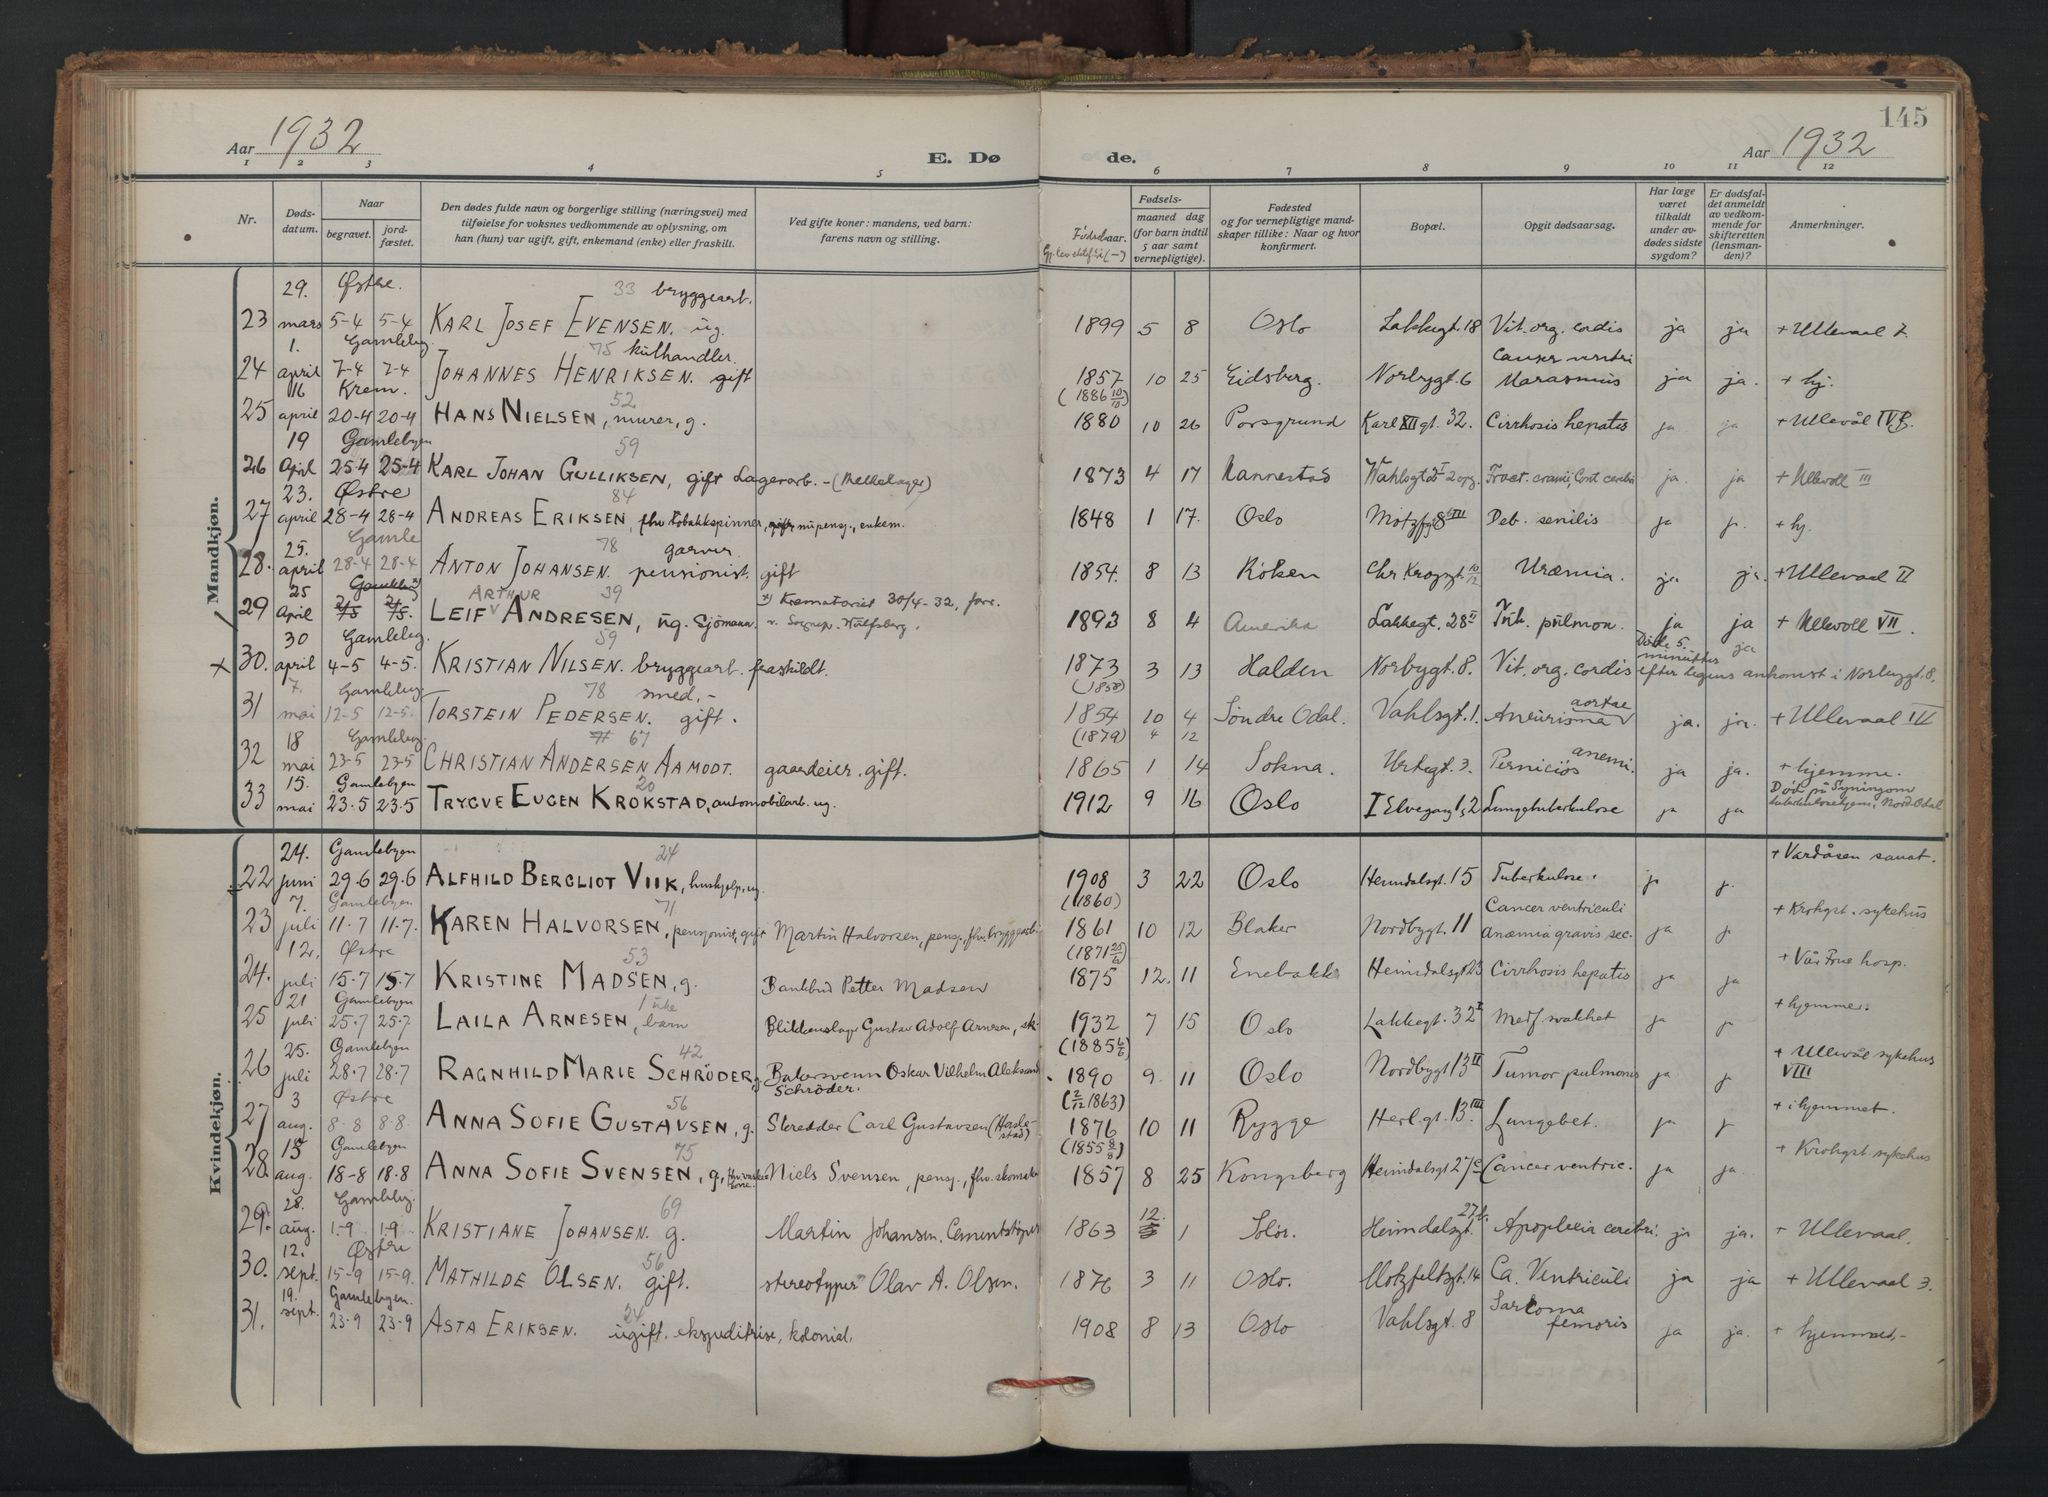 145
Aar 1932
E. Dø
de.
Aar 1932
1 2 3 4 5 6 7 8 9 10 11 12
Nr.
Døds-
datum.
Naar
begravet.
jord-
fæstet.
Den dødes fulde navn og borgerlige stilling (næringsvei) med
tilføielse for voksnes vedkommende av oplysning, om
han (hun) var ugift, gift, enkemand (enke) eller fraskilt.
Ved gifte koner: mandens, ved barn:
farens navn og stilling.
Fødselsaar.
Fødsels-
maaned dag
(for barn indtil
5 aar samt
vernepligtige).
Fødested
og for vernepligtige mand-
skaper tillike: Naar og hvor
konfirmert.
Bopæl.
Opgit dødsaarsag.
Har læge
været
tilkaldt
under av-
dødes sidste
sygdom?
Er dødsfal-
det anmeldt
av vedkom-
mende for
skifteretten
(lensman-
den)?
Anmerkninger.
Mandkjøn.
29. Østre. 33 bryggearb.
23 mars 5-4 5-4 KARL JOSEF EVENSEN. ug. 1899 5 8 Oslo Lakkegt. 18 Vit. org. cordis ja ja + Ullevaal 7.
1. Gamleby. 75 kulhandler. Cancer ventri
24 april 7-4 7-4 JOHANNES HENRIKSEN. gift 1857 10 25 Eidsberg. Norbygt. 6 Marasmus ja ja. + hj.
16 Krem. 52 (1886 10/10)
25 april 20-4 20-4 HANS NIELSEN, murer, g. 1880 10 26 Porsgrund Karl XII gt. 32. Cirrhosis hepatis ja ja + Ullevål IV B.
19 Gamlebyen 59
26 April 25-4 25-4 KARL JOHAN GULLIKSEN, gift Lagerarb. - (Melkelager) 1873 4 17 Nannestad Wahlsgt. 2 Fract. cranii, Cont. cerebri ja. ja + Ullevoll III
23. Østre 84
27 april 28-4 28-4 ANDREAS ERIKSEN, fhv. tobakkspinner, nu pensj., enkem. 1848 1 17. Oslo Motzfgt 8 III Deb. senilis ja j. + hj.
25. Gamle 78 garver.
28. april 28-4 28-4 ANTON JOHANSEN. pensionist. gift 1854. 8 13 Røken Chr. Kroggt. 10/12 Uræmia. ja ja. + Ullevaal II
25 Gamleby x) ARTHUR 39 x) Krematoriet 30/4-32, forr.
29 April 2/5 2/5. LEIF ANDRESEN, ug. Sjømann. v. Sognep. Hålfsberg. 1893 8 4 Amerika Lakkegt. 28 II Tub. pulmon. ja ja + Ullevoll VII.
30 Gamleby. 59 Døde 5. minutter ja
x 30. april 4-5 4-5. KRISTIAN NILSEN. bryggearb. fraskildt. 1873 3 13 Halden Norbygt. 8. Vit. org. cordis efter legens ankomst i Norbygt. 8.
7. Gamleby. 78 smed. - (1858) aortae
31 mai 12-5 12-5. TORSTEIN PEDERSEN. gift. 1854 10 4 Søndre Odal. Vahlsgt. 1. Aneurisma ja. ja. + Ullevaal III
18 Gamleby. 67 (1879) 4 12 anemi.
32 mai 23-5 23-5 CHRISTIAN ANDERSEN AAMODT. gaardeier. gift. 1865 1 14 Sokna. Urtegt. 3. Perniciøs ja ja. + hjemme.
15. Gamlebyen 20 Død på Syningom
33 mai 23.5 23.5 TRYGVE EUGEN KROKSTAD, automobilarb. ug. 1912 9 16 Oslo I Elvegang 1, 2 Lungetuberkulose ja ja tuberkulosehjem, Nord-Odal
Kvindekjøn.
24. Gamlebyen 24 + Vardåsen sanat.
22 juni 29.6 29.6 ALFHILD BERGLIOT VIIK, hushjelp, ug. 1908 3 22 Oslo Heimdalsgt. 15 Tuberkulose. ja j.
7. Gamlebyen 71 (1860) Cancer ventriculi + Krohgst. sykehus
23 juli 11.7 11.7. KAREN HALVORSEN, pensjonist, gift Martin Halvorsen, pensj., fhv. bryggearb. 1861 10 12 Blaker Nordbygt. 11 anæmia gravis sec. ja j.
12. Østre 53 (1871 25/6) + Vår Frue hosp.
24. juli 15.7 15.7 KRISTINE MADSEN, g. Bankbud Petter Madsen 1875 12. 11 Enebakk Heimdalsgt 23 Cirrhosis hepatis ja ja
21 Gamlebyen 1 uke + hjemme.
25 juli 25.7 25.7 LAILA ARNESEN, barn Blikkenslager Gustav Adolf Arnesen, sk. 1932 7 15 Oslo Lakkegt. 32 I Medf. svakhet ja j.
25. Gamlebyen 42 (1885 6/6) + Ullevål sykehus
26 juli 28.7 28.7 RAGNHILD MARIE SCHRÖDER, g. Bakersvenn Oskar Vilhelm Aleksand. Schröder. 1890 9. 11 Oslo Nordbygt 13 II Tumor pulmonis ja j. VIII
3 Østre 56 (2/12 1863) + i hjemmet.
27 aug. 8-8 8.8. ANNA SOFIE GUSTAVSEN, g. Skredder Carl Gustavsen (Hasle-stad) 1876 10 11 Rygge Herl. gt. 13 III Lungebet. ja j.
15 Gamlebyen 75 (1855 8/8) + Krohgst. sykehus
28. aug. 18-8 18.8 ANNA SOFIE SVENSEN, g. Niels Svensen, pensj., fhv. skomaker 1857 8 25 Kongsberg Heimdalsgt 27 c Cancer ventric. ja ja.
28. Gamleby. 69 12. 27 b.
29. aug. 1-9 1.9. KRISTIANE JOHANSEN. g. Martin Johansen. Cementstøper 1863 1 Solør. Heimdalsgt. Apoplexia cerebri. ja ja. + Ullevaal.
12. Østre 56
30. sept. 15-9 15-9. MATHILDE OLSEN. gift. stereotypør Olav A. Olsen. 1876 3 11 Oslo. Motzfeltsgt. 14 Ca. Ventriculi ja ja + Ullevaal 3.
19. Gamlebyen. 24 Sarcoma
31. sept. 23-9 23-9 ASTA ERIKSEN. ugift. ekspeditrise, kolonial. 1908 8 13 Oslo Vahlsgt. 8 femoris ja ja. + hjemmet,-